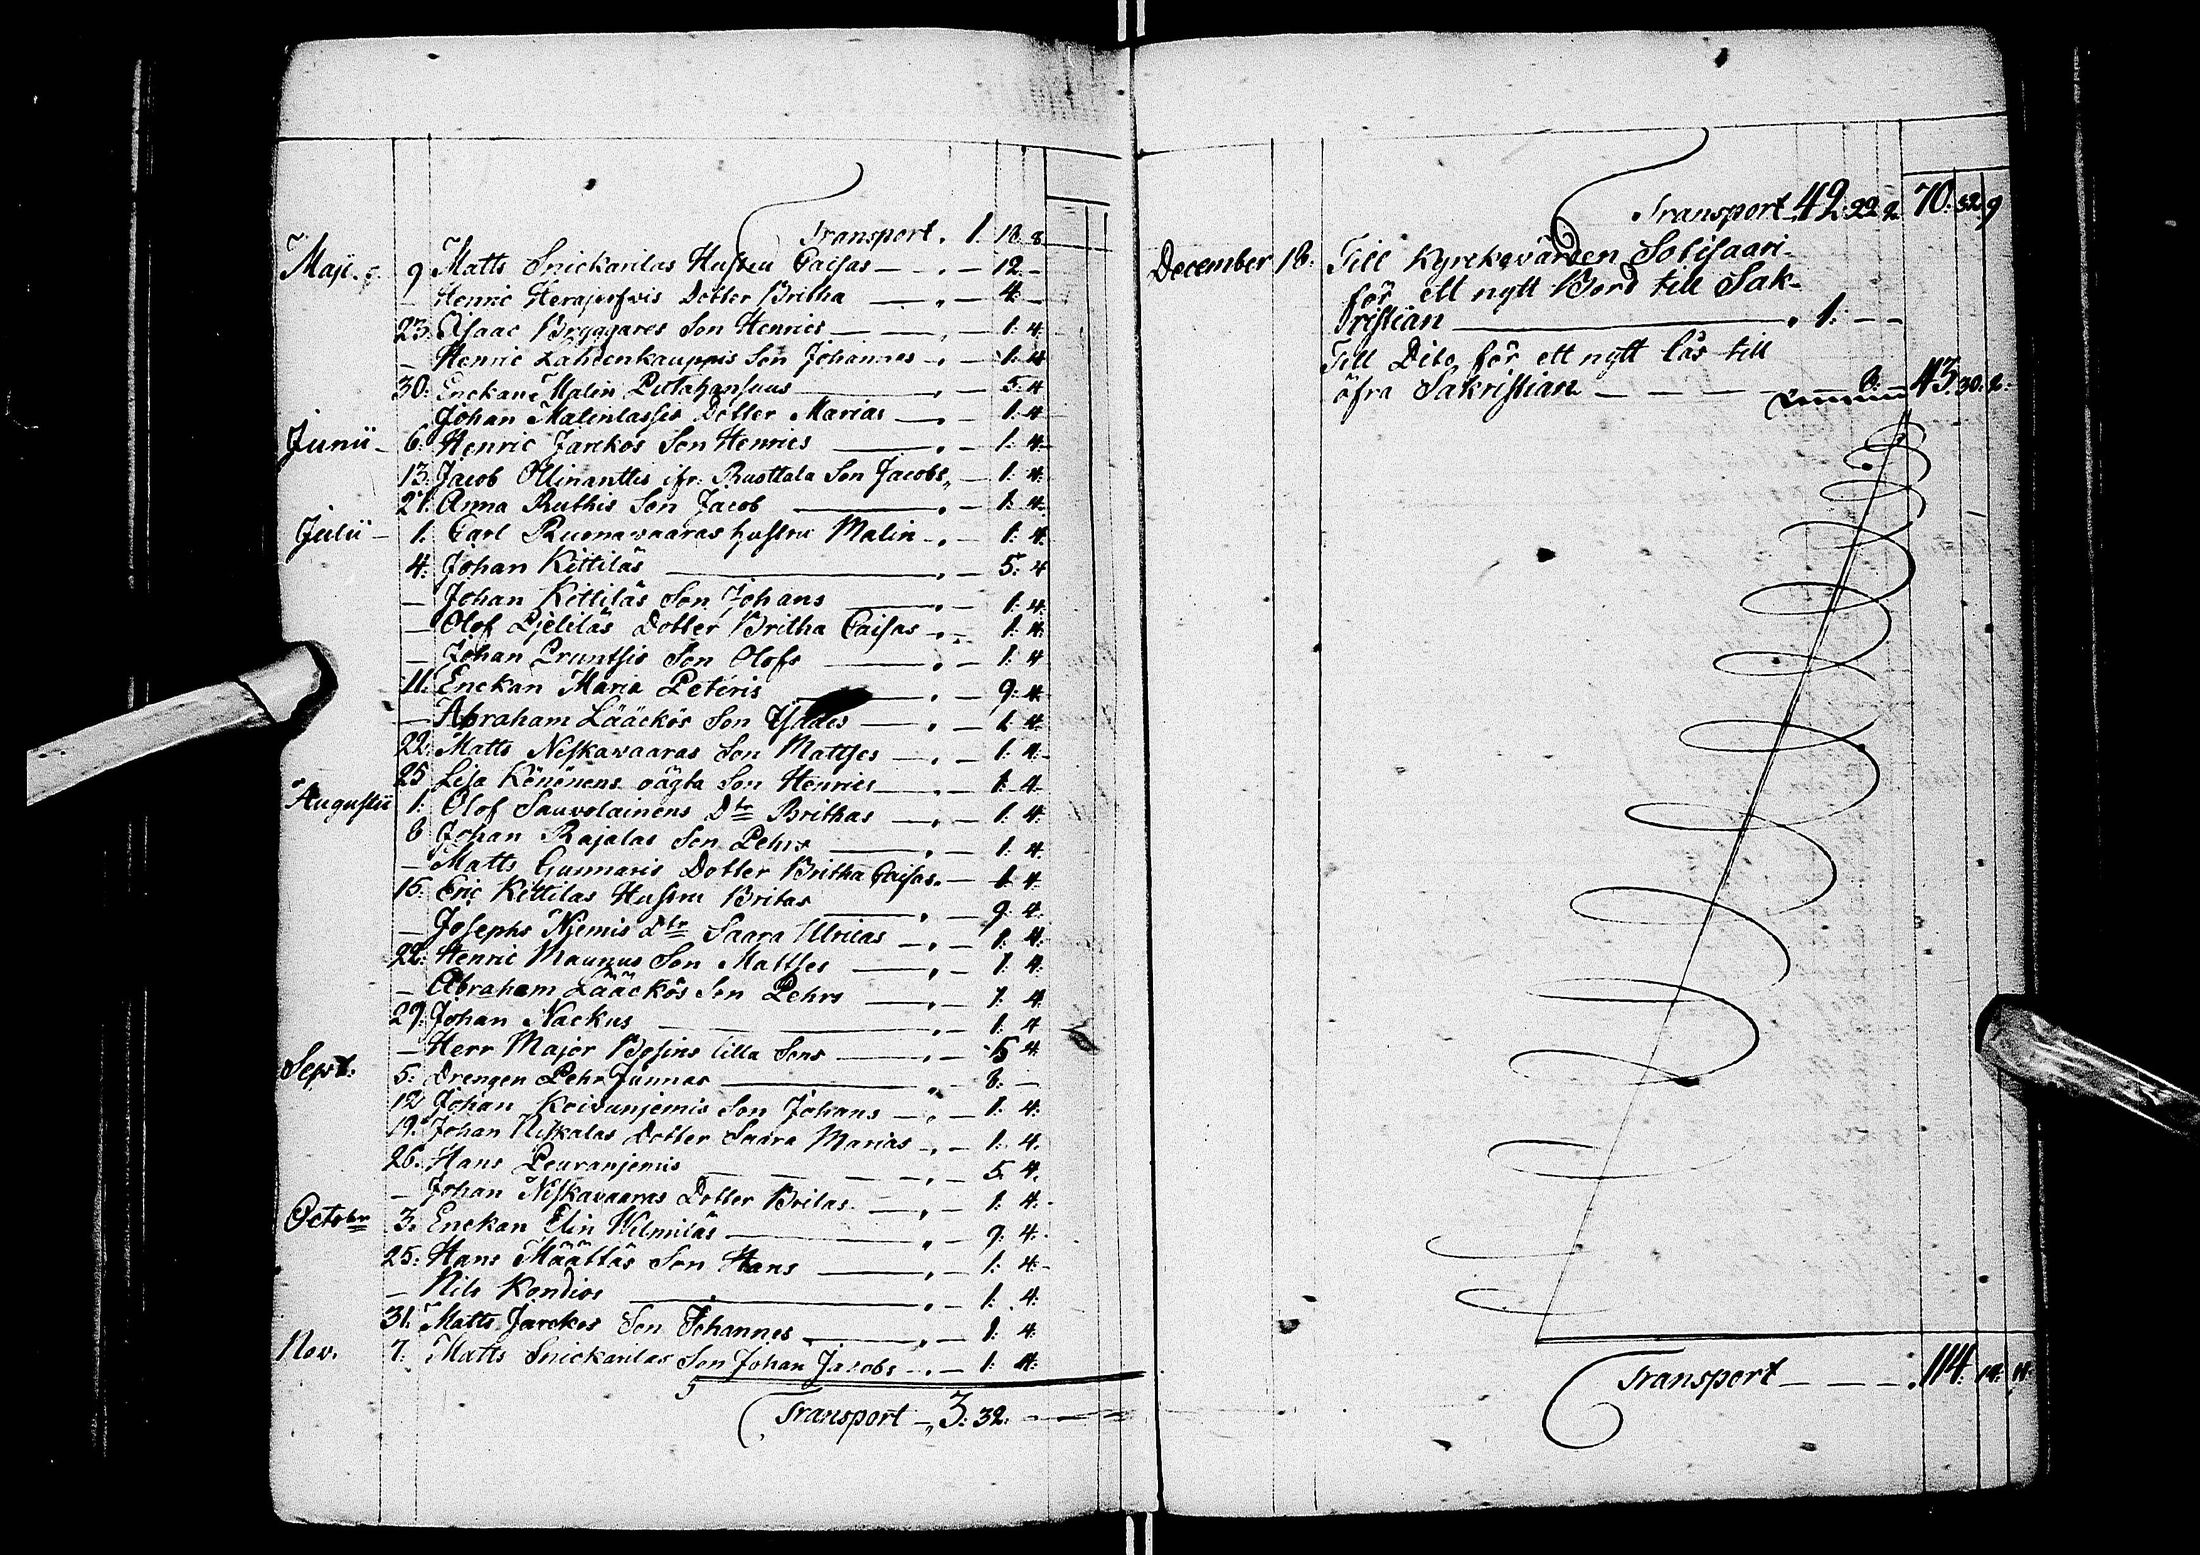 Transport. 1. 18. 8.
Maji. 9 Matts Snickarilas Hustru Caisas — 12. —
— Henric Herajerfwis Dotter Britha — 4. —
23. Isaac Bryggares Son Henrics — 1. 4.
— Henric Lahdenkauppis Son Johannes — 1. 4.
30. Enckan Malin — 5. 4
Johan Malinlassis Dotter Marias — 1. 4
Junii — 6. Henric Jarckos Son Henrics — 1. 4.
13. Jacob Ollinanttis ifr. Ruottala Son Jacobs — 1. 4.
27. Anna Ruthis Son Jacob — 1. 4.
Julii — 1. Carl Ruonawaaras hustru Malin — 1. 4.
4. Johan Kittiläs — 5. 4
— Johan Kittiläs Son Johans — 1. 4.
— Olof Pjetiläs Dotter Britha Caisas — 1. 4.
— Johan Pruntsis Son Olofs — 1. 4
11. Enckan Maria Peteris — 9. 4.
— Abraham Lääckös Son Isaacs — 1. 4.
22. Matts Niskawaaras Son Mattses — 1. 4.
25. Lisa Könönens oägta Son Henrics — 1. 4.
Augustii 1. Olof Sauvolainens Dtr Brithas — 1. 4.
8 Johan Rajalas Son Pehrs — 1. 4.
— Matts Gunnaris Dotter Britha Caisas — 1. 4.
15. Eric Kittilas Hustru Britas — 9. 4.
— Josephs Niemis Dtr Saara Ulricas — 1. 4.
22. Henric Maunus Son Mattses — 1. 4.
— Abraham Lääckös Son Pehrs — 1. 4.
29. Johan Nackus — 1. 4
— Herr Major Bosins lilla Sons — 5 4.
Sept. 5. Drengen Pehr Junnas — 8. —
12 Johan Koivunjemis Son Johans — 1. 4.
19. Johan Niskalas Dotter Saara Marias — 1. 4.
26. Hans Peuranjemis — 5. 4.
— Johan Niskavaaras Dotter Britas — 1. 4.
Octobr 3. Enckan Elin Wilmiläs — 9. 4.
25. Hans Määttäs Son Hans — 1. 4.
— Nils Kondios — 1. 4.
31. Matts Jarckos Son Johannes — 1. 4.
Nov. 7. Matts Snickarilas Son Johan Jacobs — 1. 4.
Transport — 3. 32.
Transport 42. 22. 2. 70. 32. 9
December 18. Till Kyrckovärden Solisaari
för ett nytt Bord till Sak-
ristian — 1. — —
Till Dito för ett nytt lås till
öfra Sakristian — 8. — 43. 30. 2.
Transport — 114. 14. 11.